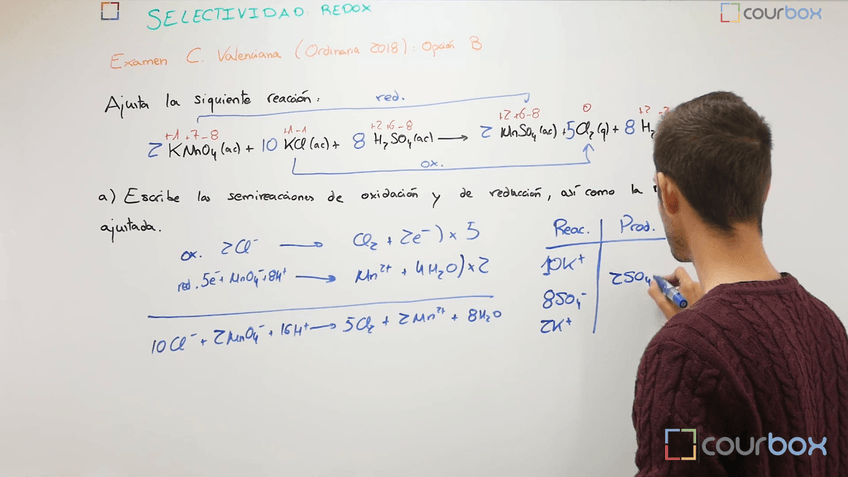 SELECTIVIDAD: REDOX
courbox
Examen C. Valenciana (Ordinaria 2018): Opción B
Ajusta la siguiente reacción:
red.
+1 +7 -8 +1 -1 +2 +6 -8 +2 +6 -8 0 +2 -2
2 KMnO₄(ac) + 10 KCl(ac) + 8 H₂SO₄(ac) → 2 MnSO₄(ac) + 5Cl₂(g) + 8 H₂
ox.
a) Escribe las semireacciones de oxidación y de reducción, así como la
ajustada.
ox. 2Cl⁻ → Cl₂ + 2e⁻) × 5
red. 5e⁻ + MnO₄⁻ + 8H⁺ → Mn²⁺ + 4H₂O) × 2
10Cl⁻ + 2MnO₄⁻ + 16H⁺ → 5Cl₂ + 2Mn²⁺ + 8H₂O
Reac. Prod.
10K⁺
2SO₄
8SO₄⁻
2K⁺
courbox